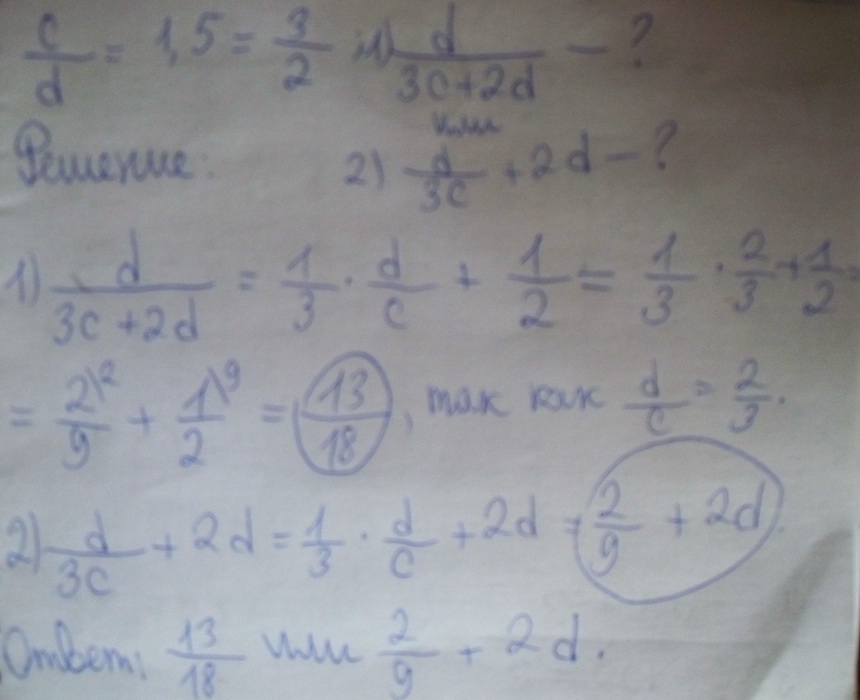 c/d = 1,5 = 3/2; 1) d/(3c+2d) - ?
или
Решение: 2) d/3c + 2d - ?
1) d/(3c+2d) = 1/3 · d/c + 1/2 = 1/3 · 2/3 + 1/2 =
= 2\2/9 + 1\9/2 = 13/18, так как d/c = 2/3.
2) d/3c + 2d = 1/3 · d/c + 2d = 2/9 + 2d.
Ответ: 13/18 или 2/9 + 2d.